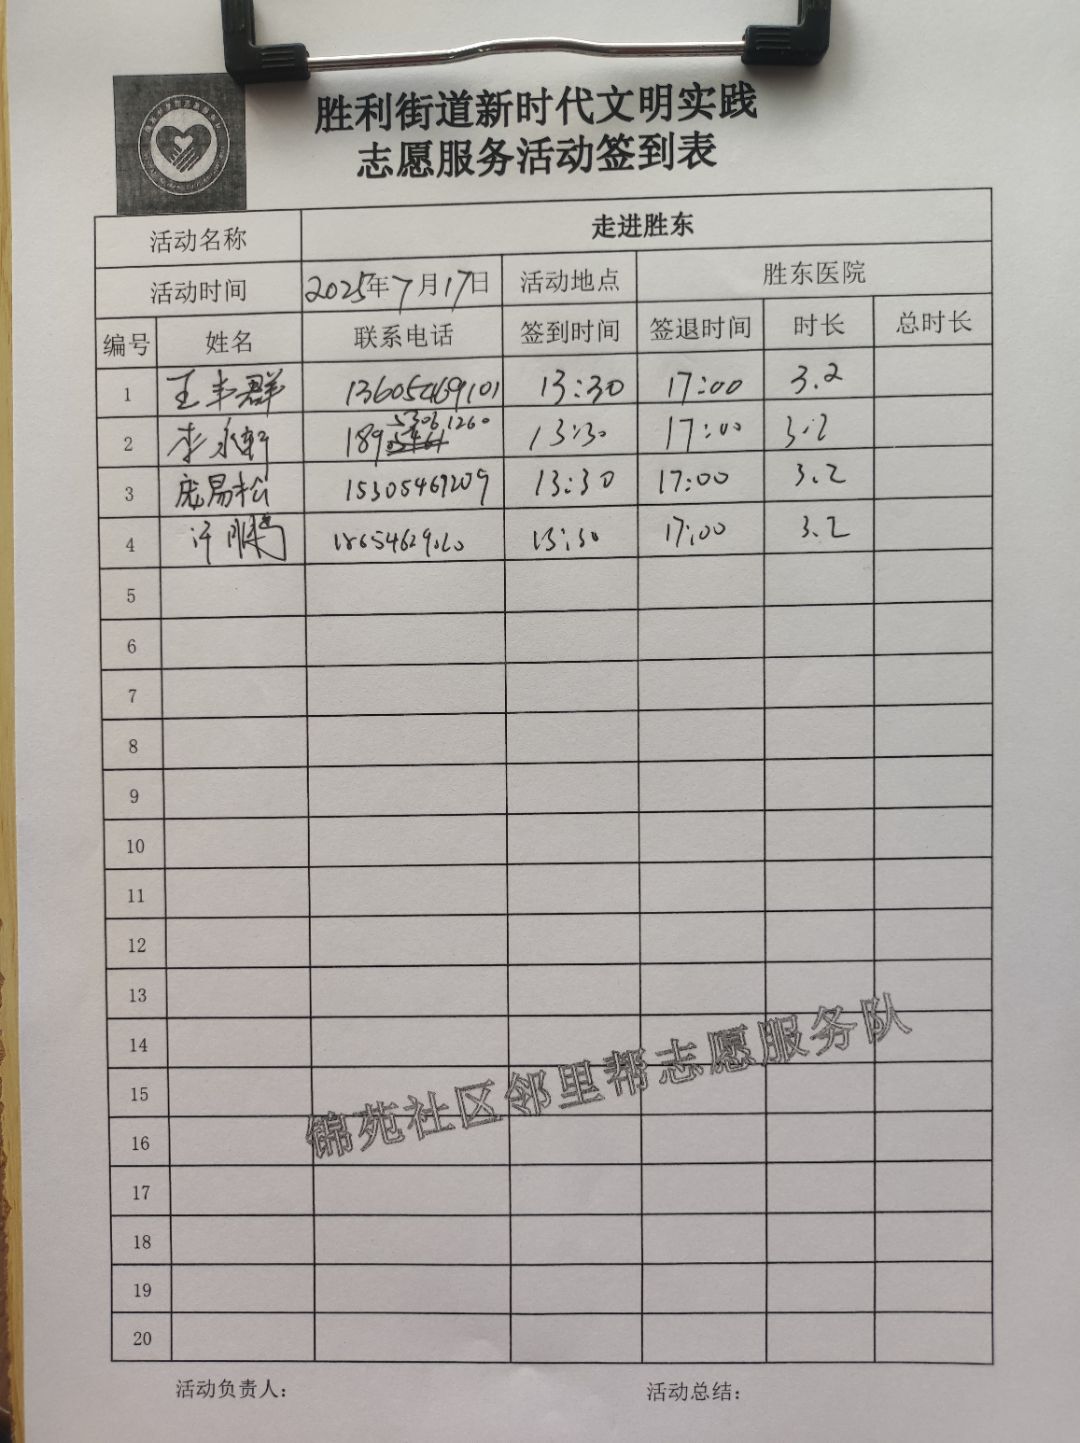 胜利街道新时代文明实践
志愿服务活动签到表
活动名称 走进胜东
活动时间 2025年7月17日 活动地点 胜东医院
编号 姓名 联系电话 签到时间 签退时间 时长 总时长
1 王丰群 13605469101 13:30 17:00 3.2
2 李永轩 189 53061260 13:30 17:00 3.2
3 庞易松 15305469209 13:30 17:00 3.2
4 许 13:30 17:00 3.2
5
6
7
8
9
10
11
12
13
14
15
16
17
18
19
20
锦苑社区邻里帮志愿服务队
活动负责人：
活动总结：